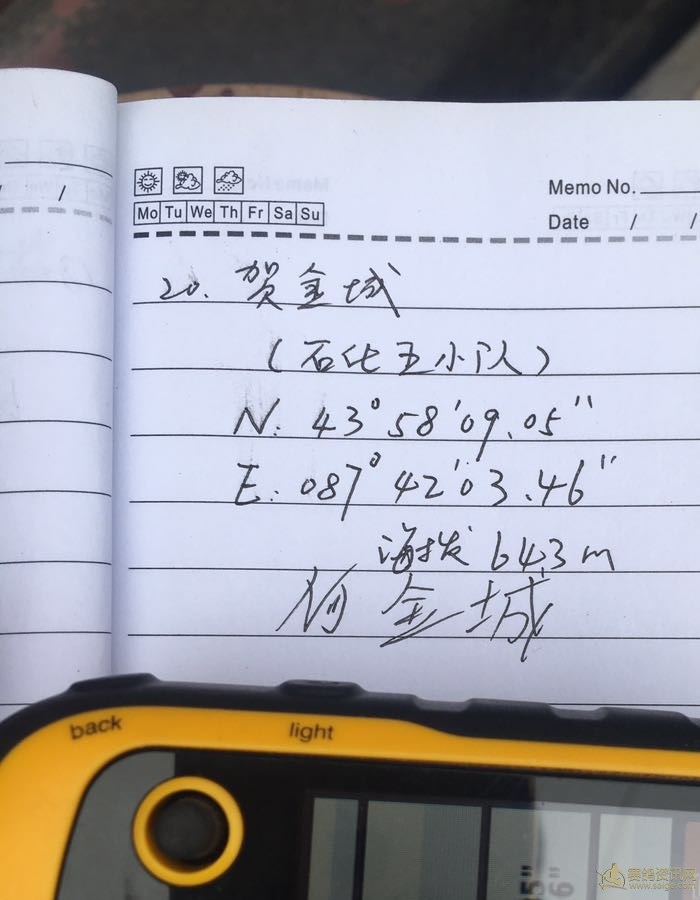 Memo No.
Mo Tu We Th Fr Sa Su
Date / /
20. 贺金城
(石化五小队)
N: 43°58'09.05"
E: 087°42'03.46"
海拔 643m
何金城
back
light
赛鸽资讯网